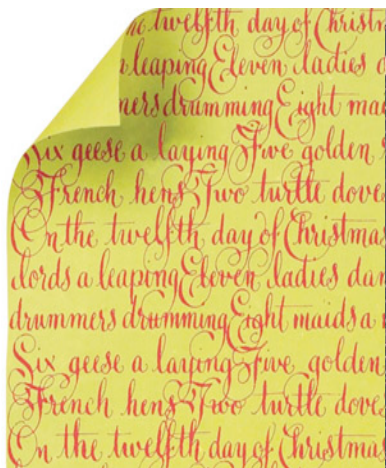 the twelfth day of Christm
leaping Eleven ladies d
mers drumming Eight mai
Six geese a laying Five golden
French hens Two turtle dove
On the twelfth day of Christmas
lords a leaping Eleven ladies dan
drummers drumming Eight maids a
Six geese a laying Five golden
French hens Two turtle dove
On the twelfth day of Christmas